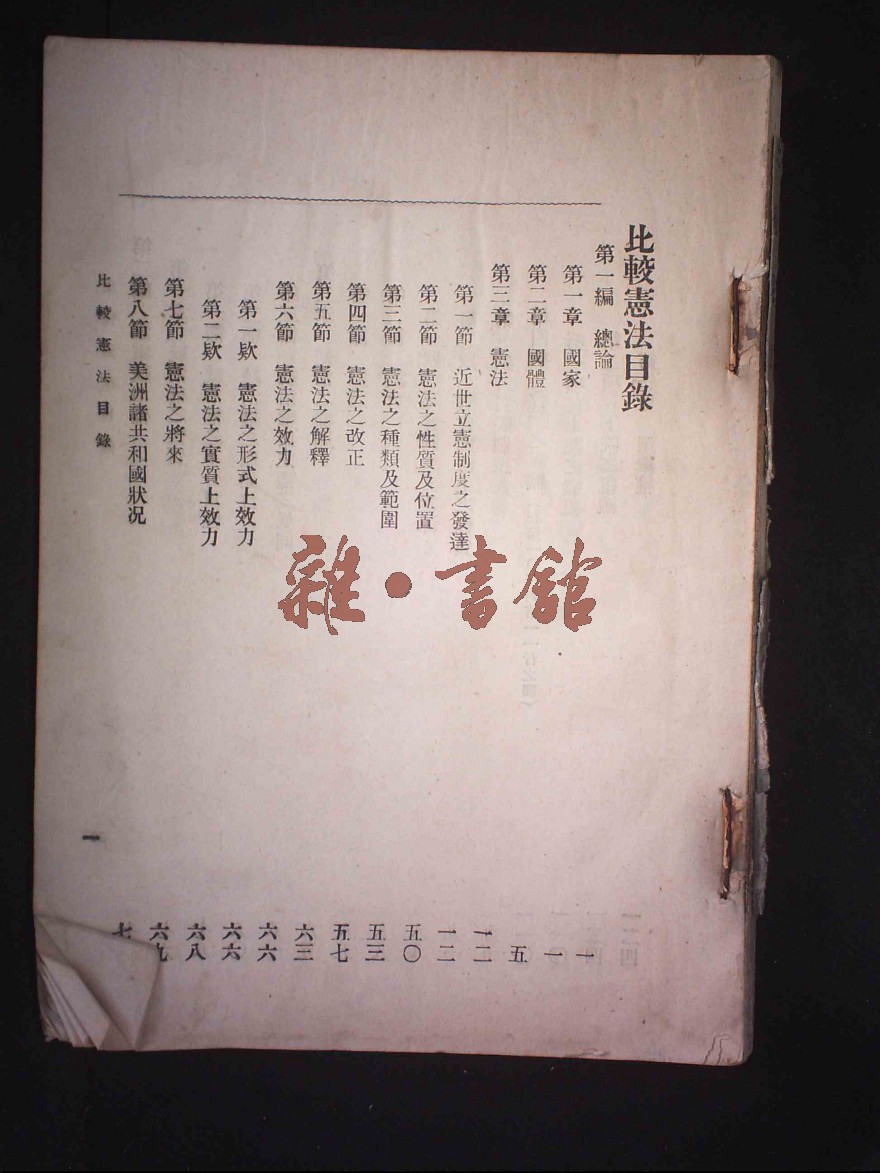 比較憲法目錄
第一編 總論 一
第一章 國家 一
第二章 國體 五
第三章 憲法 一二
第一節 近世立憲制度之發達 一二
第二節 憲法之性質及位置 五〇
第三節 憲法之種類及範圍 五三
第四節 憲法之改正 五七
第五節 憲法之解釋 六三
第六節 憲法之效力 六六
第一欵 憲法之形式上效力 六六
第二欵 憲法之實質上效力 六八
第七節 憲法之將來 六九
第八節 美洲諸共和國狀况
比較憲法目錄
一
雜·書館